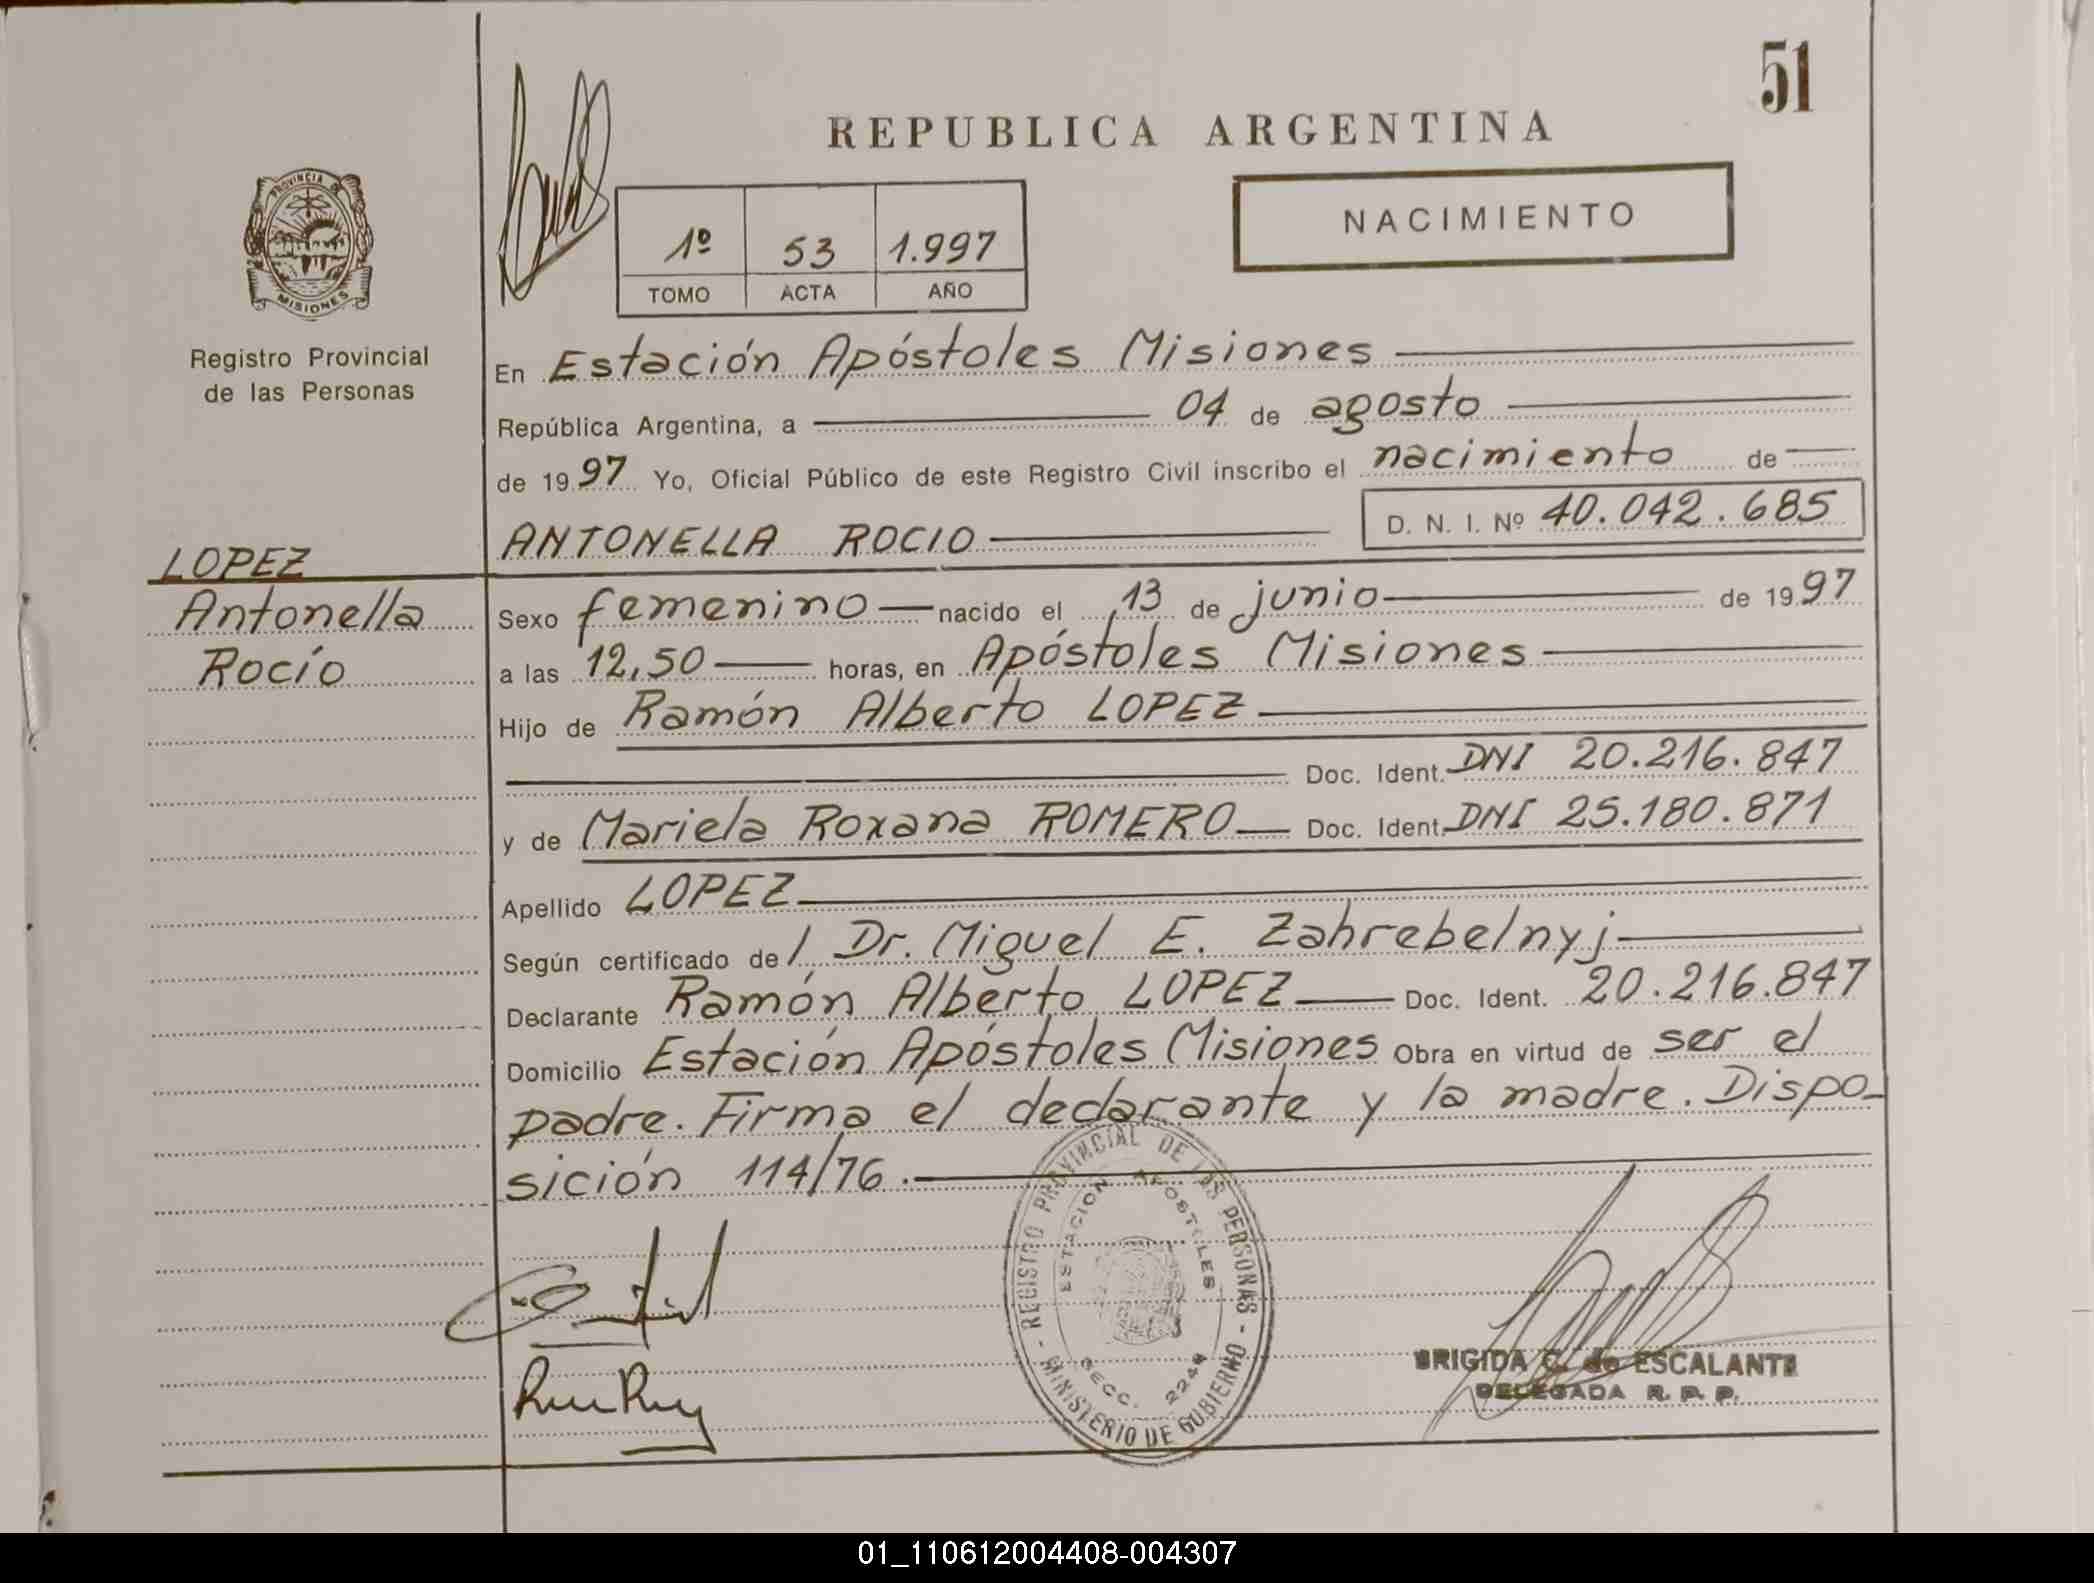 51
REPUBLICA ARGENTINA
PROVINCIA DE
MISIONES
Registro Provincial
de las Personas
1º 53 1.997
TOMO ACTA AÑO
NACIMIENTO
En Estación Apóstoles Misiones
República Argentina, a 04 de agosto
de 1997 Yo, Oficial Público de este Registro Civil inscribo el nacimiento de
ANTONELLA ROCIO D. N. I. Nº 40.042.685
LOPEZ
Antonella
Rocío
Sexo femenino nacido el 13 de junio de 1997
a las 12,50 horas, en Apóstoles Misiones
Hijo de Ramón Alberto LOPEZ
Doc. Ident. DNI 20.216.847
y de Mariela Roxana ROMERO Doc. Ident. DNI 25.180.871
Apellido LOPEZ
Según certificado de l Dr. Miguel E. Zahrebelnyj
Declarante Ramón Alberto LOPEZ Doc. Ident. 20.216.847
Domicilio Estación Apóstoles Misiones Obra en virtud de ser el
padre. Firma el declarante y la madre. Dispo-
sición 114/76.
REGISTRO PROVINCIAL DE LAS PERSONAS - MINISTERIO DE GOBIERNO -
ESTACION APOSTOLES
SECC. 2244
BRIGIDA C. de ESCALANTE
DELEGADA R. P. P.
01_110612004408-004307